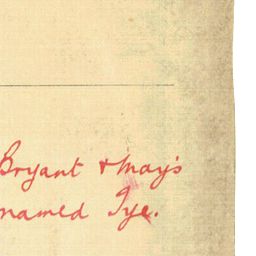 Bryant & May's
named Tye.